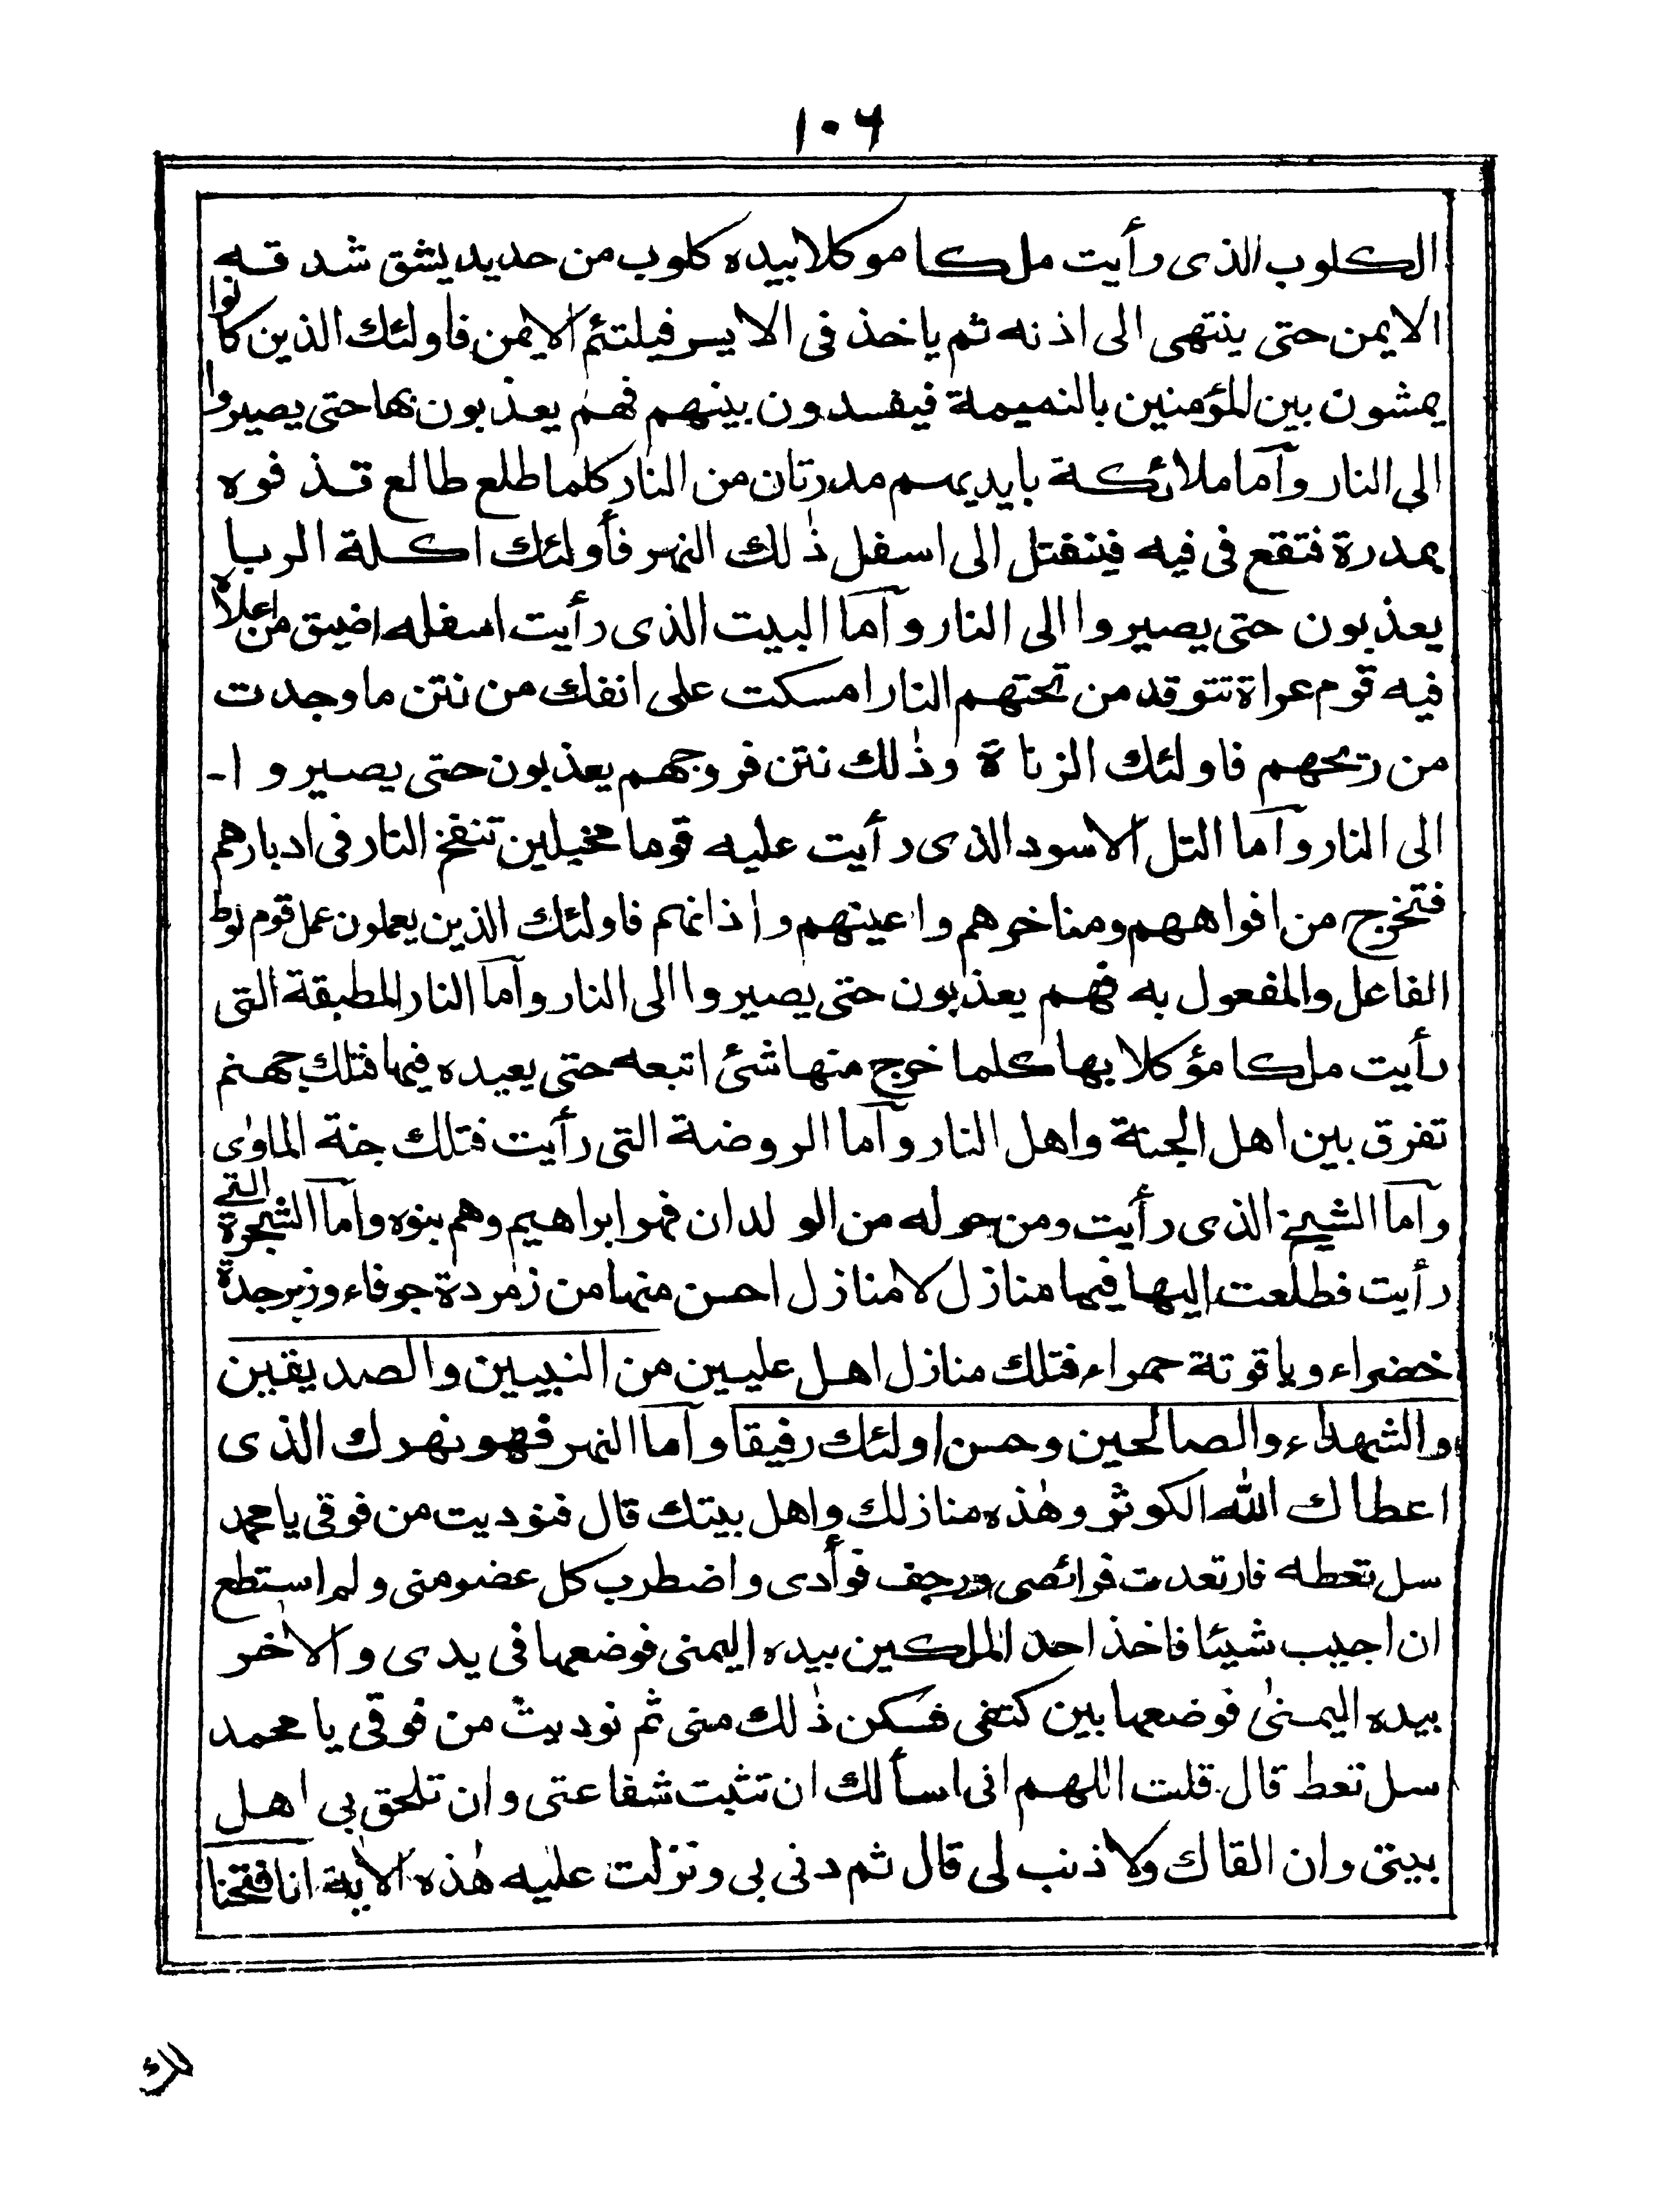 ١٠٦
الكلوب الذى رأيت ملكا موكلا بيده كلوب من حديد يشق شدقه
الايمن حتى ينتهى الى اذنه ثم ياخذ فى الايسر فيلتئم الايمن فاولئك الذين كانوا
يمشون بين المؤمنين بالنميمة فيفسدون بينهم فهم يعذبون بها حتى يصيروا
الى النار وآما ملائكة بايديهم مدرتان من النار كلما طلع طالع قذفوه
بمدرة فتقع فى فيه فينفتل الى اسفل ذٰلك النهر فأولئك اكلة الربا
يعذبون حتى يصيروا الى النار وآما البيت الذى رأيت اسفله اضيق من اعلاه
فيه قوم عراة تتوقد من تحتهم النار امسكت على انفك من نتن ما وجدت
من ريحهم فاولئك الزناة وذٰلك نتن فروجهم يعذبون حتى يصيروا -
الى النار وآما التل الاسود الذى رأيت عليه قوما مخبلين تنفخ النار فى ادبارهم
فتخرج من افواههم ومناخرهم واعينهم واذانهم فاولئك الذين يعملون عمل قوم لوط
الفاعل والمفعول به فهم يعذبون حتى يصيروا الى النار وآما النار المطبقة التى
رأيت ملكا مؤكلا بها كلما خرج منها شئ اتبعه حتى يعيده فيها فتلك جهنم
تفرق بين اهل الجنة واهل النار وآما الروضة التى رأيت فتلك جنة الماوٰى
وآما الشيخ الذى رأيت ومن حوله من الولدان فهو ابراهيم وهم بنوه وآما الشجرة التى
رأيت فطلعت اليها فيها منازل لا منازل احسن منها من زمردة جوفاء وزبرجدة
خضراء وياقوتة حمراء فتلك منازل اهل عليين من النبيين والصديقين
والشهداء والصالحين وحسن اولئك رفيقا وآما النهر فهو نهرك الذى
اعطاك الله الكوثر وهٰذه منازلك واهل بيتك قال فنوديت من فوقى يا محمد
سل تعطه فارتعدت فرائصى ورجف فوأدى واضطرب كل عضو منى ولم استطع
ان اجيب شيئا فاخذ احد الملكين بيده اليمنى فوضعها فى يدى والاٰخر
بيده اليمنىٰ فوضعها بين كتفى فسكن ذٰلك منى ثم نوديت من فوقى يا محمد
سل تعط قال قلت اللهم انى اسألك ان تثبت شفاعتى وان تلحق بى اهل
بيتى وان القاك ولا ذنب لى قال ثم دنى بى ونزلت عليه هٰذه الاٰية انا فتحنا
لك